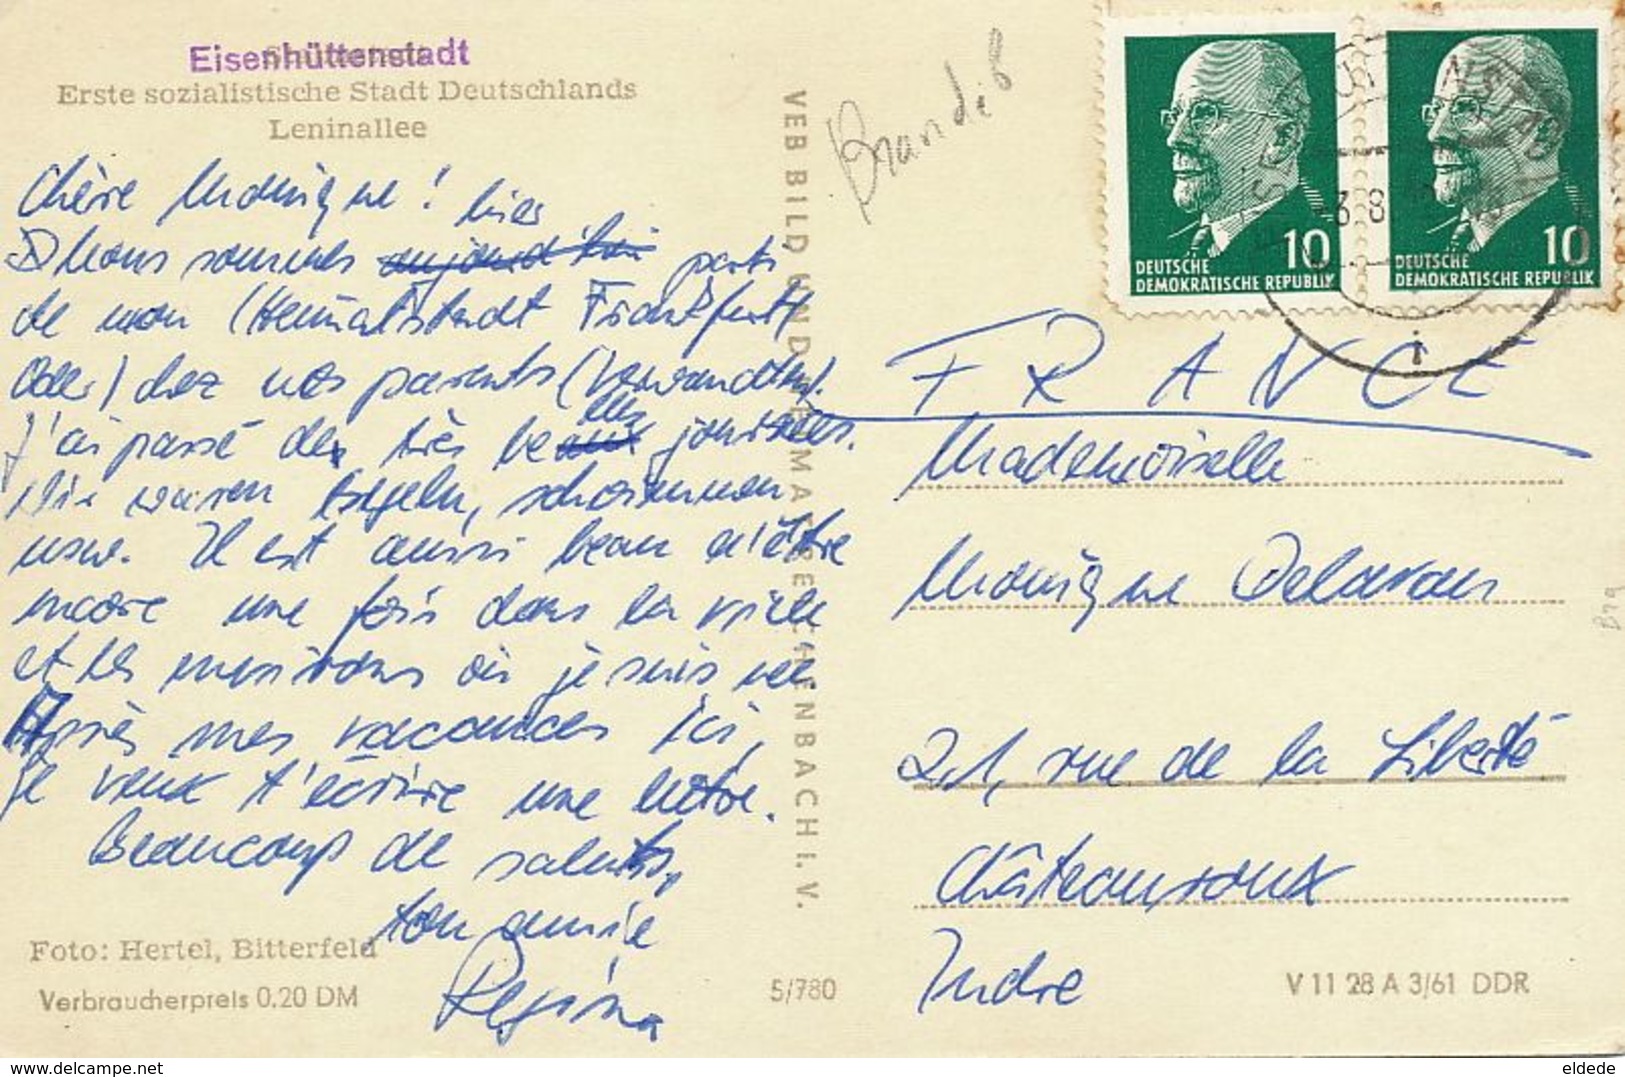 Eisenhüttenstadt
Erste sozialistische Stadt Deutschlands
Leninallee
Chère Monique! hier
Nous sommes aujourd'hui partis
de mon (Heimatstadt Frankfurt
Oder) chez nos parents (Verwandten).
J'ai passé des très belles journées.
Wir waren segeln, schwimmen
usw. Il est aussi beau d'être
encore une fois dans la ville
et les environs où je suis née.
Après mes vacances ici,
je veux t'écrire une lettre.
Beaucoup de saluts,
ton amie
Regina
Foto: Hertel, Bitterfeld
Verbraucherpreis 0.20 DM
VEB BILD UND HEIMAT REICHENBACH I. V.
5/780
V 11 28 A 3/61 DDR
10
DEUTSCHE
DEMOKRATISCHE REPUBLIK
10
DEUTSCHE
DEMOKRATISCHE REPUBLIK
FRANCE
Mademoiselle
Monique Delavau
21, rue de la Liberté
Châteauroux
Indre
www.delcampe.net
eldede